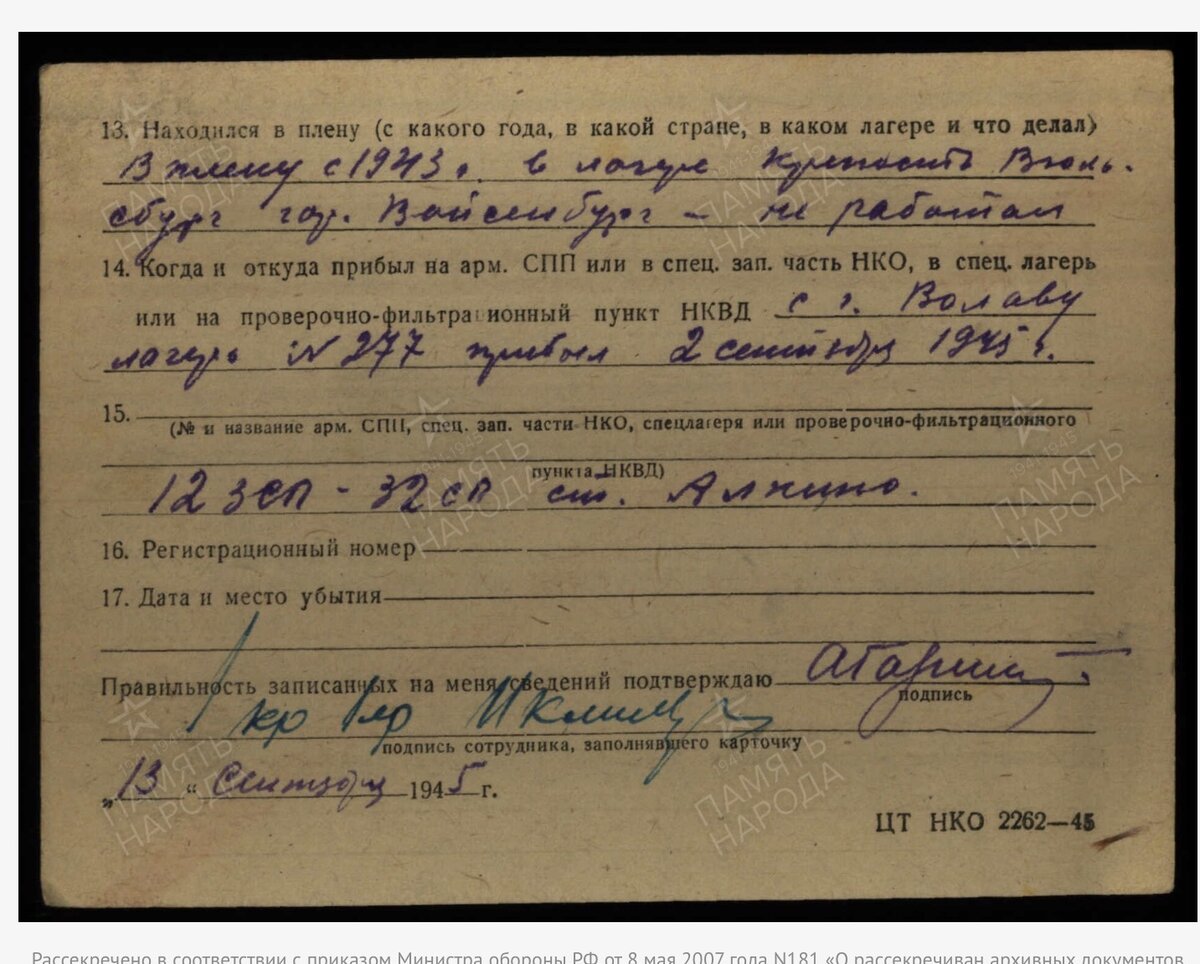 13. Находился в плену (с какого года, в какой стране, в каком лагере и что делал)
В плену с 1943 г. в лагере крепость Вюль-
сбург гор. Вайсенбург – не работал
14. Когда и откуда прибыл на арм. СПП или в спец. зап. часть НКО, в спец. лагерь
или на проверочно-фильтрационный пункт НКВД с г. Волаву
лагерь N 277 прибыл 2 сентября 1945 г.
15.
(№ и название арм. СПП, спец. зап. части НКО, спецлагеря или проверочно-фильтрационного
пункта НКВД)
12 зсп - 32 сп ст. Алкино.
16. Регистрационный номер
17. Дата и место убытия
Правильность записанных на меня сведений подтверждаю
подпись
подпись сотрудника, заполнявшего карточку
„13“ Сентября 1945 г.
ЦТ НКО 2262—45
ПАМЯТЬ НАРОДА
1941-1945
Рассекречено в соответствии с приказом Министра обороны РФ от 8 мая 2007 года N181 «О рассекречиван архивных документов